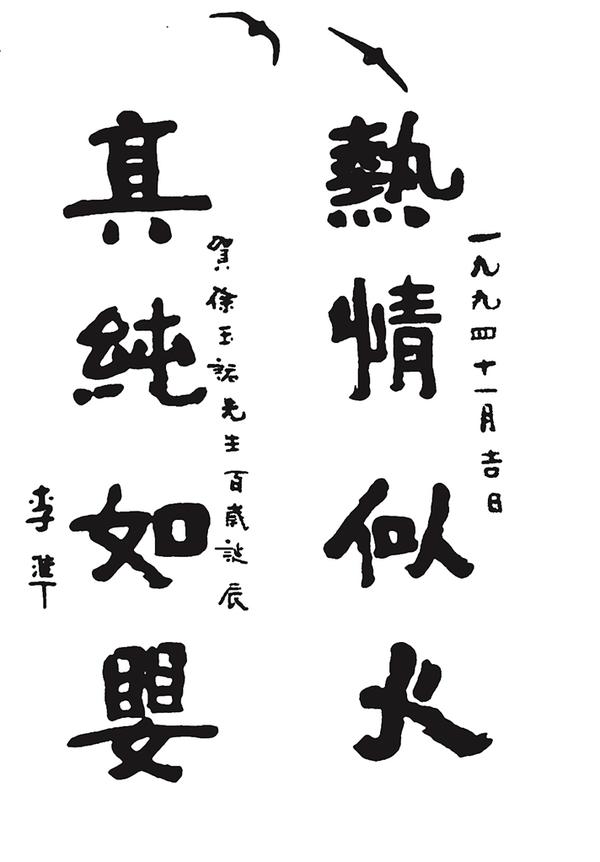 一九九四十一月吉日
熱情似火
賀徐玉諾先生百歲誕辰
真純如嬰
李準